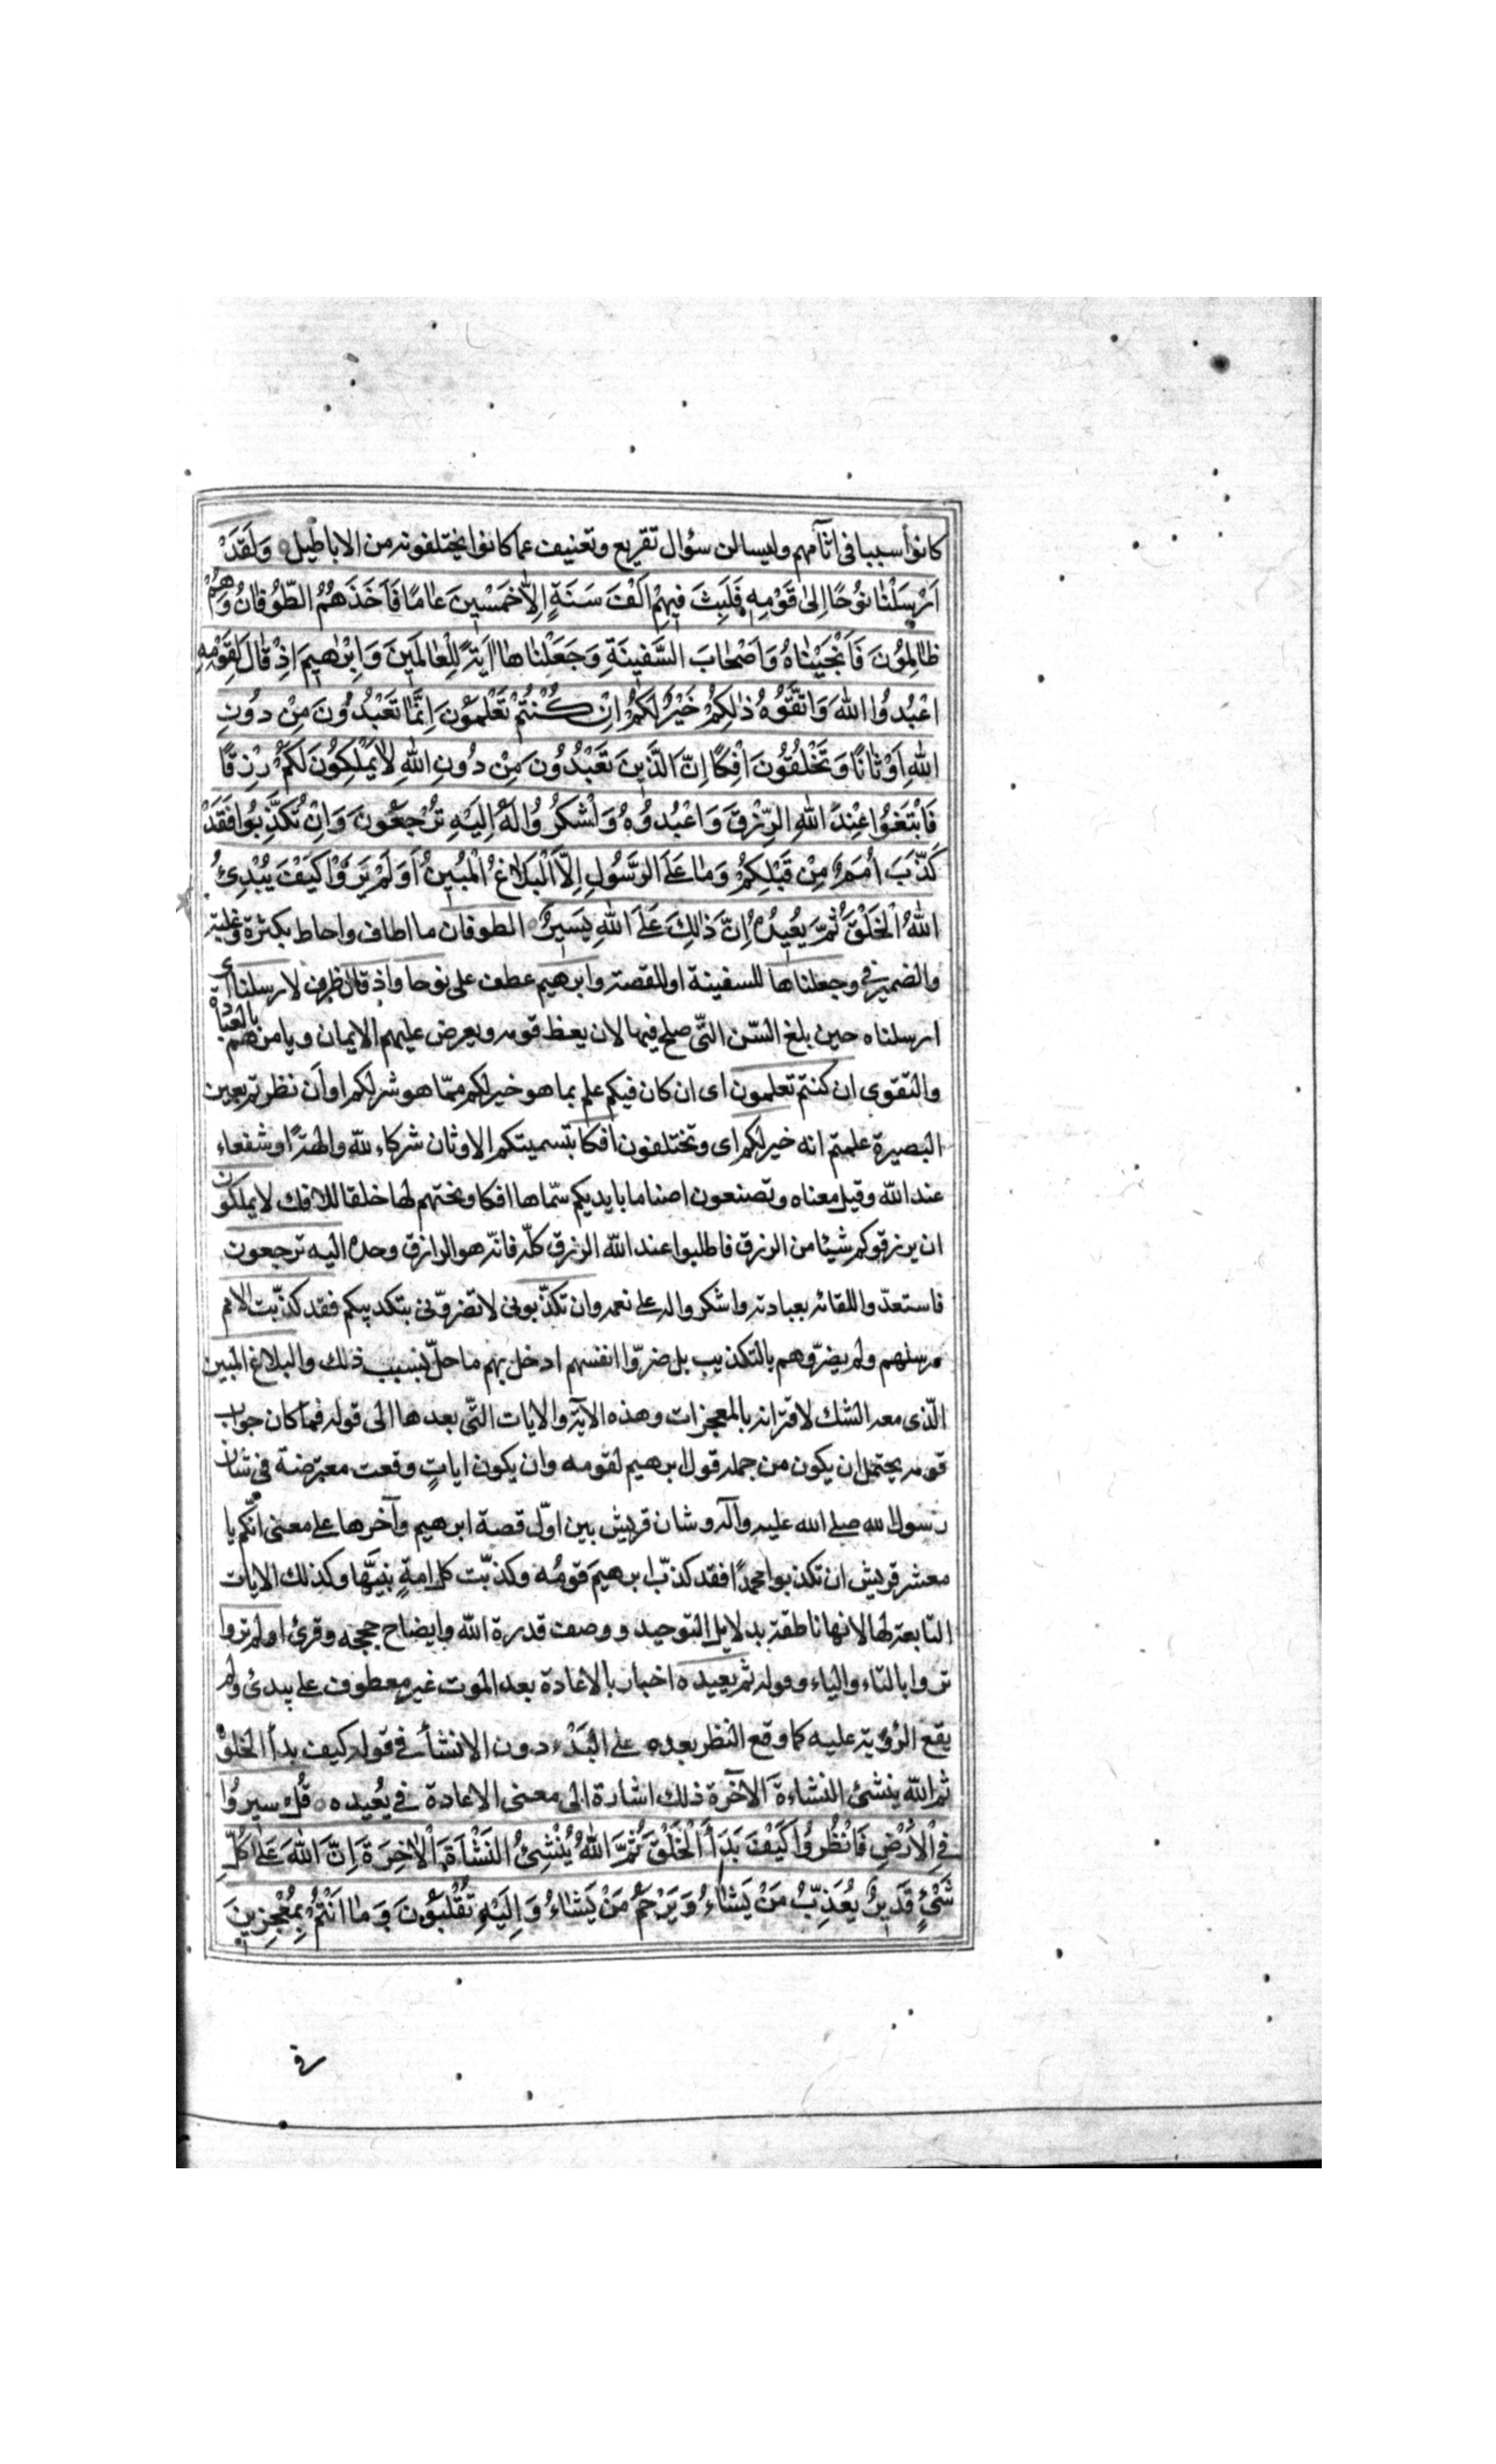 كانوا سببا فى اثآمهم وليسالن سؤال تقريع وتعنيف عما كانوا يختلقونه من الاباطيل وَلَقَدْ
اَرْسَلْنٰا نوُحًا اِلىٰ قَوْمِهِ فَلَبِثَ فيِهِمْ اَلْفَ سَنَةٍ اِلاّٰ خَمْسٖينَ عٰامًا فَاَخَذَهُمُ الطّوُفٰانُ وَهُمْ
ظٰالِموُنَ فَاَنْجَيْنٰاهُ وَاَصْحٰابَ السَّفٖينَةِ وَجَعَلْنٰاهٰا اٰيَةً لِلْعٰالَمٖينَ وَاِبْرٰهٖيمَ اِذْ قٰالَ لِقَوْمِهِ
اعْبُدوُا اللّٰهَ وَاتَّقوُهُ ذٰلِكُمْ خَيْرٌ لَكُمْ اِنْ كُنْتُمْ تَعْلَموُنَ اِنَّمٰا تَعْبُدوُنَ مِنْ دوُنِ
اللّٰهِ اَوْثٰانًا وَتَخْلُقوُنَ اِفْكًا اِنَّ الَّذٖينَ تَعْبُدوُنَ مِنْ دوُنِ اللّٰهِ لاٰ يَمْلِكوُنَ لَكُمْ رِزْقًا
فَابْتَغوُا عِنْدَ اللّٰهِ الرِّزْقَ وَاعْبُدوُهُ وَاشْكُروُا لَهُ اِلَيْهِ تُرْجَعوُنَ وَاِنْ تُكَذِّبوُا فَقَدْ
كَذَّبَ اُمَمٌ مِنْ قَبْلِكُمْ وَمٰا عَلَى الرَّسوُلِ اِلاَّ الْبَلاٰغُ الْمُبٖينُ اَوَلَمْ يَرَوْا كَيْفَ يُبْدِئُ
اللّٰهُ الْخَلْقَ ثُمَّ يُعٖيدُهُ اِنَّ ذٰلِكَ عَلَى اللّٰهِ يَسٖيرٌ الطوفان ما اطاف واحاط بكثرة وغلبة
والضمير فى وجعلناها للسفينة او للقصة وابرهيم عطف على نوحا واذ قال ظرف لارسلنا اى
ارسلناه حين بلغ السّن التّى صلح فيها لان يعظ قومه ويعرض عليهم الايمان ويامرهم بالعبادة
والتقوى ان كنتم تعلمون اى ان كان فيكم علم بما هو خير لكم ممّا هو شر لكم او ان نظرتم بعين
البصيرة علمتم انه خير لكم اى وتختلقون افكا بتسميتكم الاوثان شركاء لله والهةً او شفعاء
عند الله وقيل معناه وتصنعون اصناما بايديكم سّماها افكا ونحتهم لها خلقا للافك لا يملكون
ان يرزقوكم شيئا من الرزق فاطلبوا عند الله الرزق كلّه فانّه هو الرازق وحده اليه ترجعون
فاستعدّوا للقائه بعبادته واشكروا له على نعمه وان تكذّبونى لا تضرّونى بتكذيبكم فقد كذّبت الامم
رسلهم ولم يضرّوهم بالتكذيب بل ضرّوا انفسهم اذ حل بهم ما حلّ بسبب ذلك والبلاغ المبين
الّذى معه الشك لاقترانه بالمعجزات وهذه الآية والايات التّى بعدها الى قوله فما كان جواب
قومه يحتمل ان يكون من جملة قول ابرهيم لقومه وان يكون اياتٍ وقعت معترضة فى شان
رسول الله صلى الله عليه وآله وشان قريش بين اوّل قصة ابرهيم وآخرها على معنى انّكم يا
معشر قريش ان تكذبوا محمدًا فقد كذّب ابرهيمَ قومُه وكذبّت كل امةٍ نبيَّها وكذلك الايات
التابعة لها لانها ناطقة بدلايل التوحيد ووصف قدرة الله وايضاح حججه وقرئ اولم تروا
تروا بالتاء والياء وقوله ثم يعيده اخبار بالاعادة بعد الموت غير معطوف على يبدئ ولم
يقع الرؤية عليه كما وقع النظر بعده على البَدْء دون الانشأ فى قوله كيف بدأ الخلق
ثم الله ينشئ النشاءة الآخرة ذلك اشارة الى معنى الاعادة فى يُعيده قُلْ سيروُا
فِى الْاَرْضِ فَانْظُروُا كَيْفَ بَدَأَ الْخَلْقَ ثُمَّ اللّٰهُ يُنْشِئُ النَشْاَةَ الْاٰخِرَةَ اِنَّ اللّٰهَ عَلىٰ كُلِّ
شَىْءٍ قَدٖيرٌ يُعَذِّبُ مَنْ يَشٰاءُ وَيَرْحَمُ مَنْ يَشٰاءُ وَاِلَيْهِ تُقْلَبوُنَ وَمٰا اَنْتُمْ بِمُعْجِزٖينَ
فى